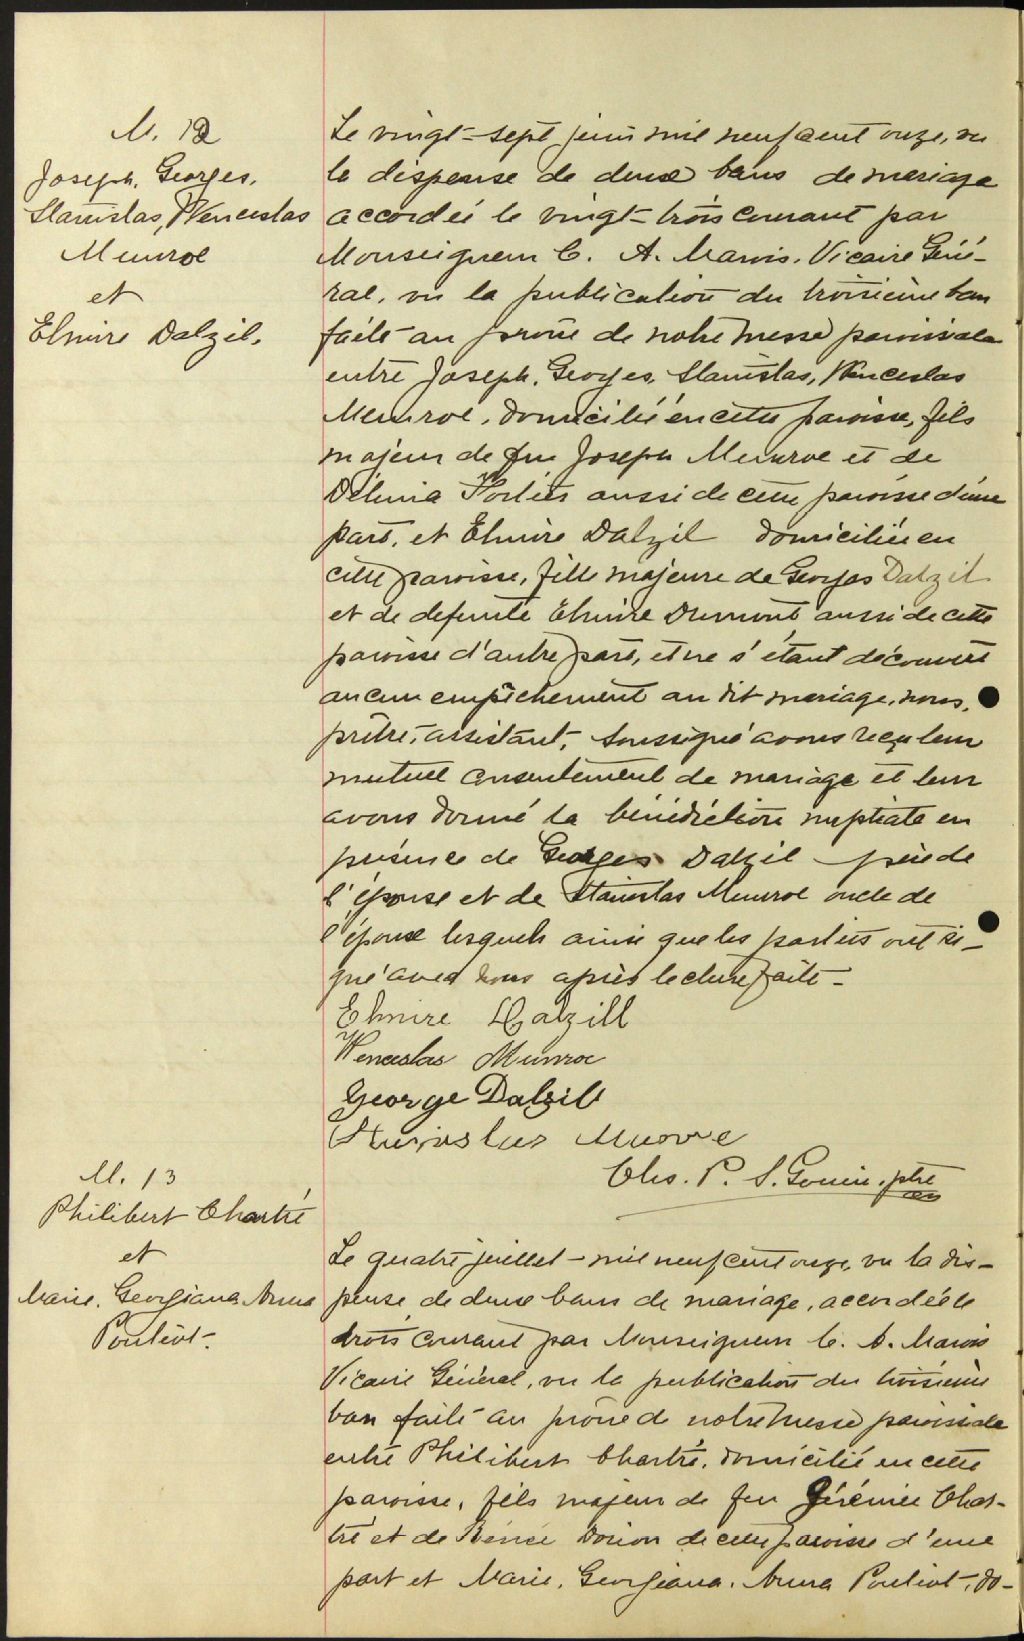 M. 12
Joseph, Georges,
Stanislas, Wenceslas
Munroe
et
Elmire Dalzil.
Le vingt-sept juin mil neuf cent onze, vu
la dispense de deux bans de mariage
accordée le vingt-trois courant par
Monseigneur C. A. Marois, Vicaire Géné-
ral, vu la publication du troisième ban
faite au prône de notre messe paroissiale
entre Joseph, Georges, Stanislas, Wenceslas
Munroe, domicilié en cette paroisse, fils
majeur de feu Joseph Munroe et de
Délima Fortier aussi de cette paroisse d'une
part, et Elmire Dalzil domiciliée en
cette paroisse, fille majeure de Georges Dalzil
et de defunte Elmire Dumont aussi de cette
paroisse d'autre part, et ne s'étant découvert
aucun empêchement au dit mariage, nous,
prêtre, assistant, soussigné avons reçu leur
mutuel consentement de mariage et leur
avons donné la bénédiction nuptiale en
présence de Georges Dalzil père de
l'épouse et de Stanislas Munroe oncle de
l'époux lesquels ainsi que les parties ont si-
gné avec nous après lecture faite-
Elmire Dalzill
Wenceslas Munroe
George Dalzil
Stanislas Munroe
Chs. P. S. Gouin, ptre
M. 13
Philibert Chartré
et
Marie, Georgiana Anna
Pouliot-
Le quatre juillet - mil neuf cent onze, vu la dis-
pense de deux bans de mariage, accordée le
trois courant par Monseigneur C. A. Marois
Vicaire Général, vu la publication du troisième
ban faite au prône de notre messe paroissiale
entre Philibert Chartré, domicilié en cette
paroisse, fils majeur de feu Jérémie Char-
tré et de Dorion de cette paroisse d'une
part et Marie, Georgiana, Anna Pouliot, do-